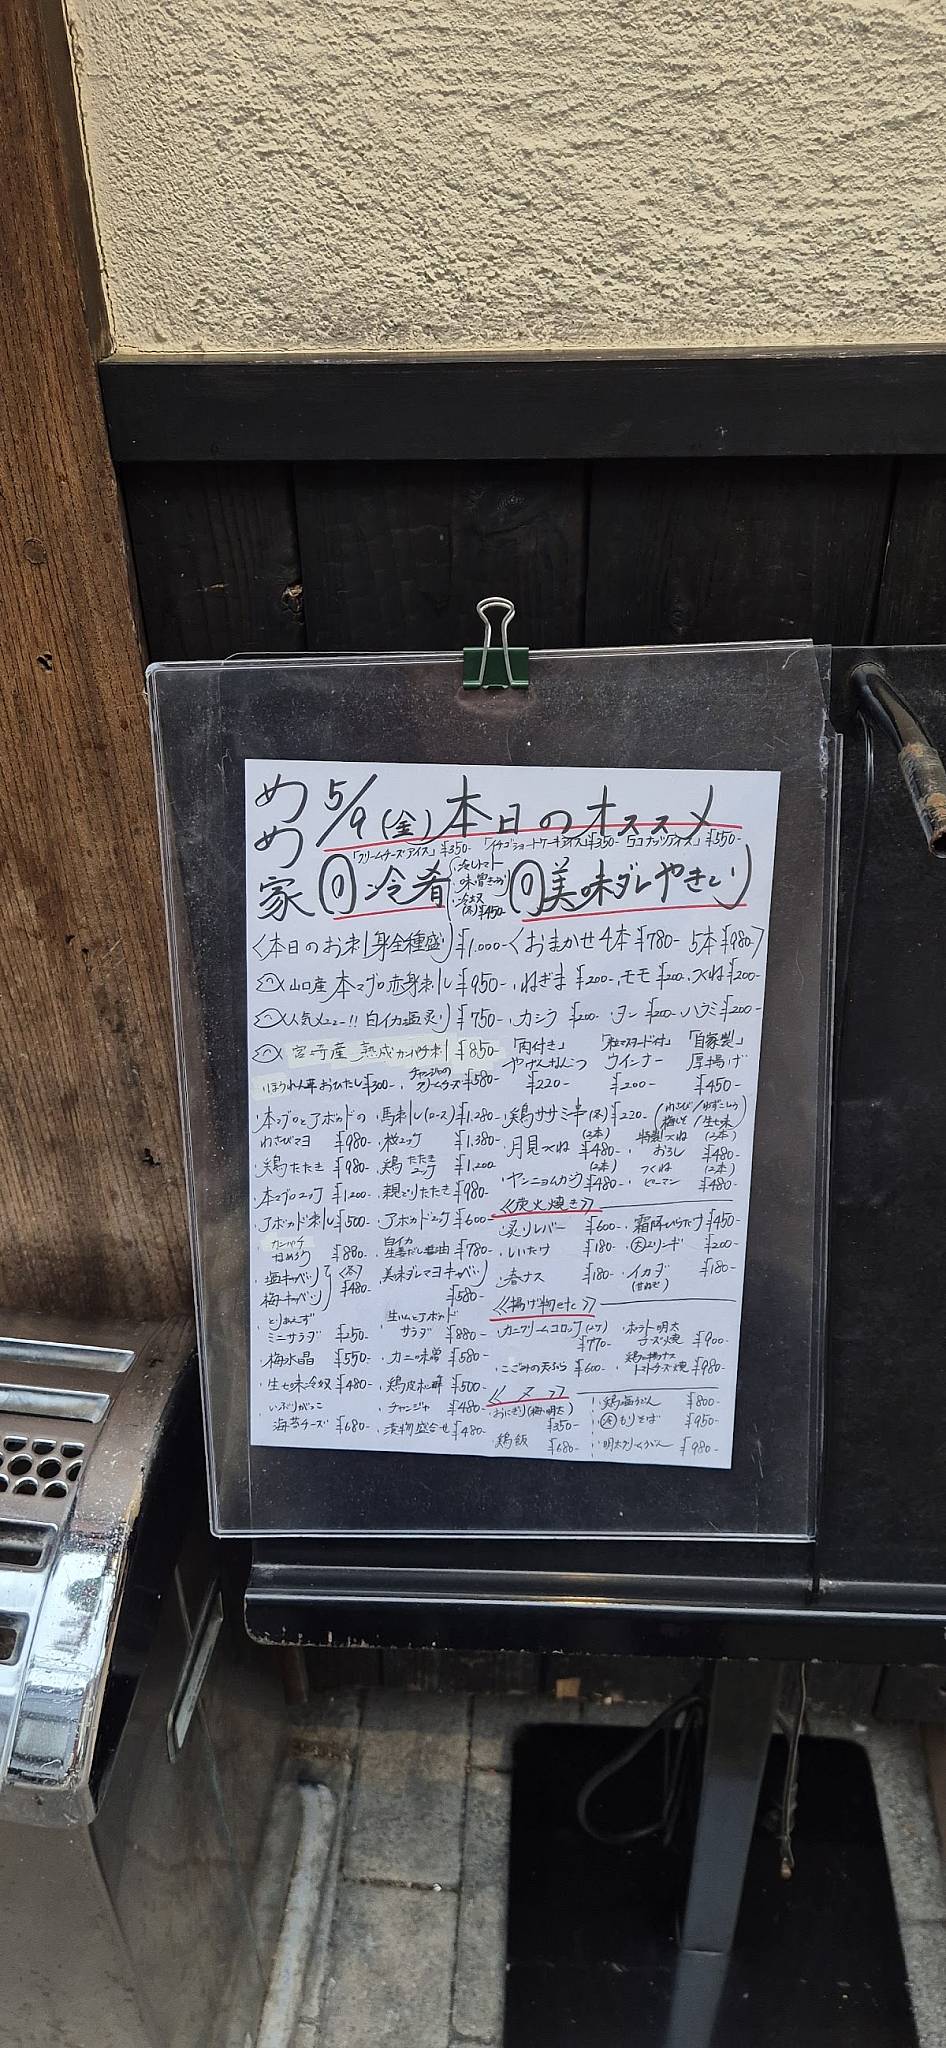 めつめ家
5/9(金)本日のオススメ
「クリームチーズアイス」¥350- 「イチゴショートケーキアイス」¥350- ¥550-
冷肴
・冷しトマト
・味噌きゅうり
・冷奴
(小)¥450-
美味ダレやきとり
〈本日のお刺身全種盛〉¥1.000-
〈おまかせ4本¥780- 5本¥980-〉
山口産 本マグロ赤身刺し ¥950-
・ねぎま ¥200- ・モモ ¥200- ・つくね¥200-
人気メニュー!! 白イカ塩炙り ¥750-
・カシラ ¥200- ・タン ¥200- ・ハラミ¥200-
宮崎産 熟成カンパチ刺 ¥850-
「肉付き」やげんなんこつ ¥220-
「粒マスタード付」ウインナー ¥200-
「自家製」厚揚げ ¥450-
・ほうれん草おひたし¥300-
・チャンジャのクリームチーズ¥580-
・本マグロとアボカドのわさびマヨ ¥980-
・馬刺し(ロース)¥1.280-
・桜ユッケ ¥1.380-
・鶏ササミ串(本)¥220- (わさび/ゆずこしょう 梅しそ/生七味)
・鶏たたき ¥980-
・鶏たたきユッケ ¥1.200
・月見つくね(2本)¥480-
・特製つくねおろし(2本)¥480-
・本マグロユッケ ¥1.200-
・親どりたたき¥980-
・ヤンニョムカシラ(2本)¥480-
・つくねピーマン(2本)¥480-
・アボカド刺し¥500-
・アボカドユッケ¥600-
《炭火焼き》
・炙りレバー ¥600-
・霜降ひらたけ¥450-
・カンパチなめろう ¥880-
・白イカ生姜だし醤油 ¥780-
・しいたけ ¥180-
・(大)エリンギ ¥200-
・塩キャベツ
・梅キャベツ
〈小〉¥480-
・美味ダレマヨキャベツ ¥580-
・春ナス ¥180-
・イカダ(甘ねぎ) ¥180-
・とりあえずミニサラダ ¥250-
・生ハムとアボカドサラダ ¥880-
《揚げ物など》
・カニクリームコロッケ(2ケ) ¥770-
・ポテト明太チーズ焼 ¥900-
・梅水晶 ¥550-
・カニ味噌 ¥580-
・こごみの天ぷら ¥600-
・鶏と揚げナストマトチーズ焼 ¥980-
・生七味冷奴 ¥480-
・鶏皮ポン酢 ¥500-
《〆》
・いぶりがっこ海苔チーズ ¥680-
・チャンジャ ¥480-
・漬物盛合せ ¥480-
・おにぎり(梅・明太) ¥350-
・鶏塩うどん ¥800-
・もりそば ¥950-
・鶏飯 ¥680-
・明太クリームうどん ¥980-